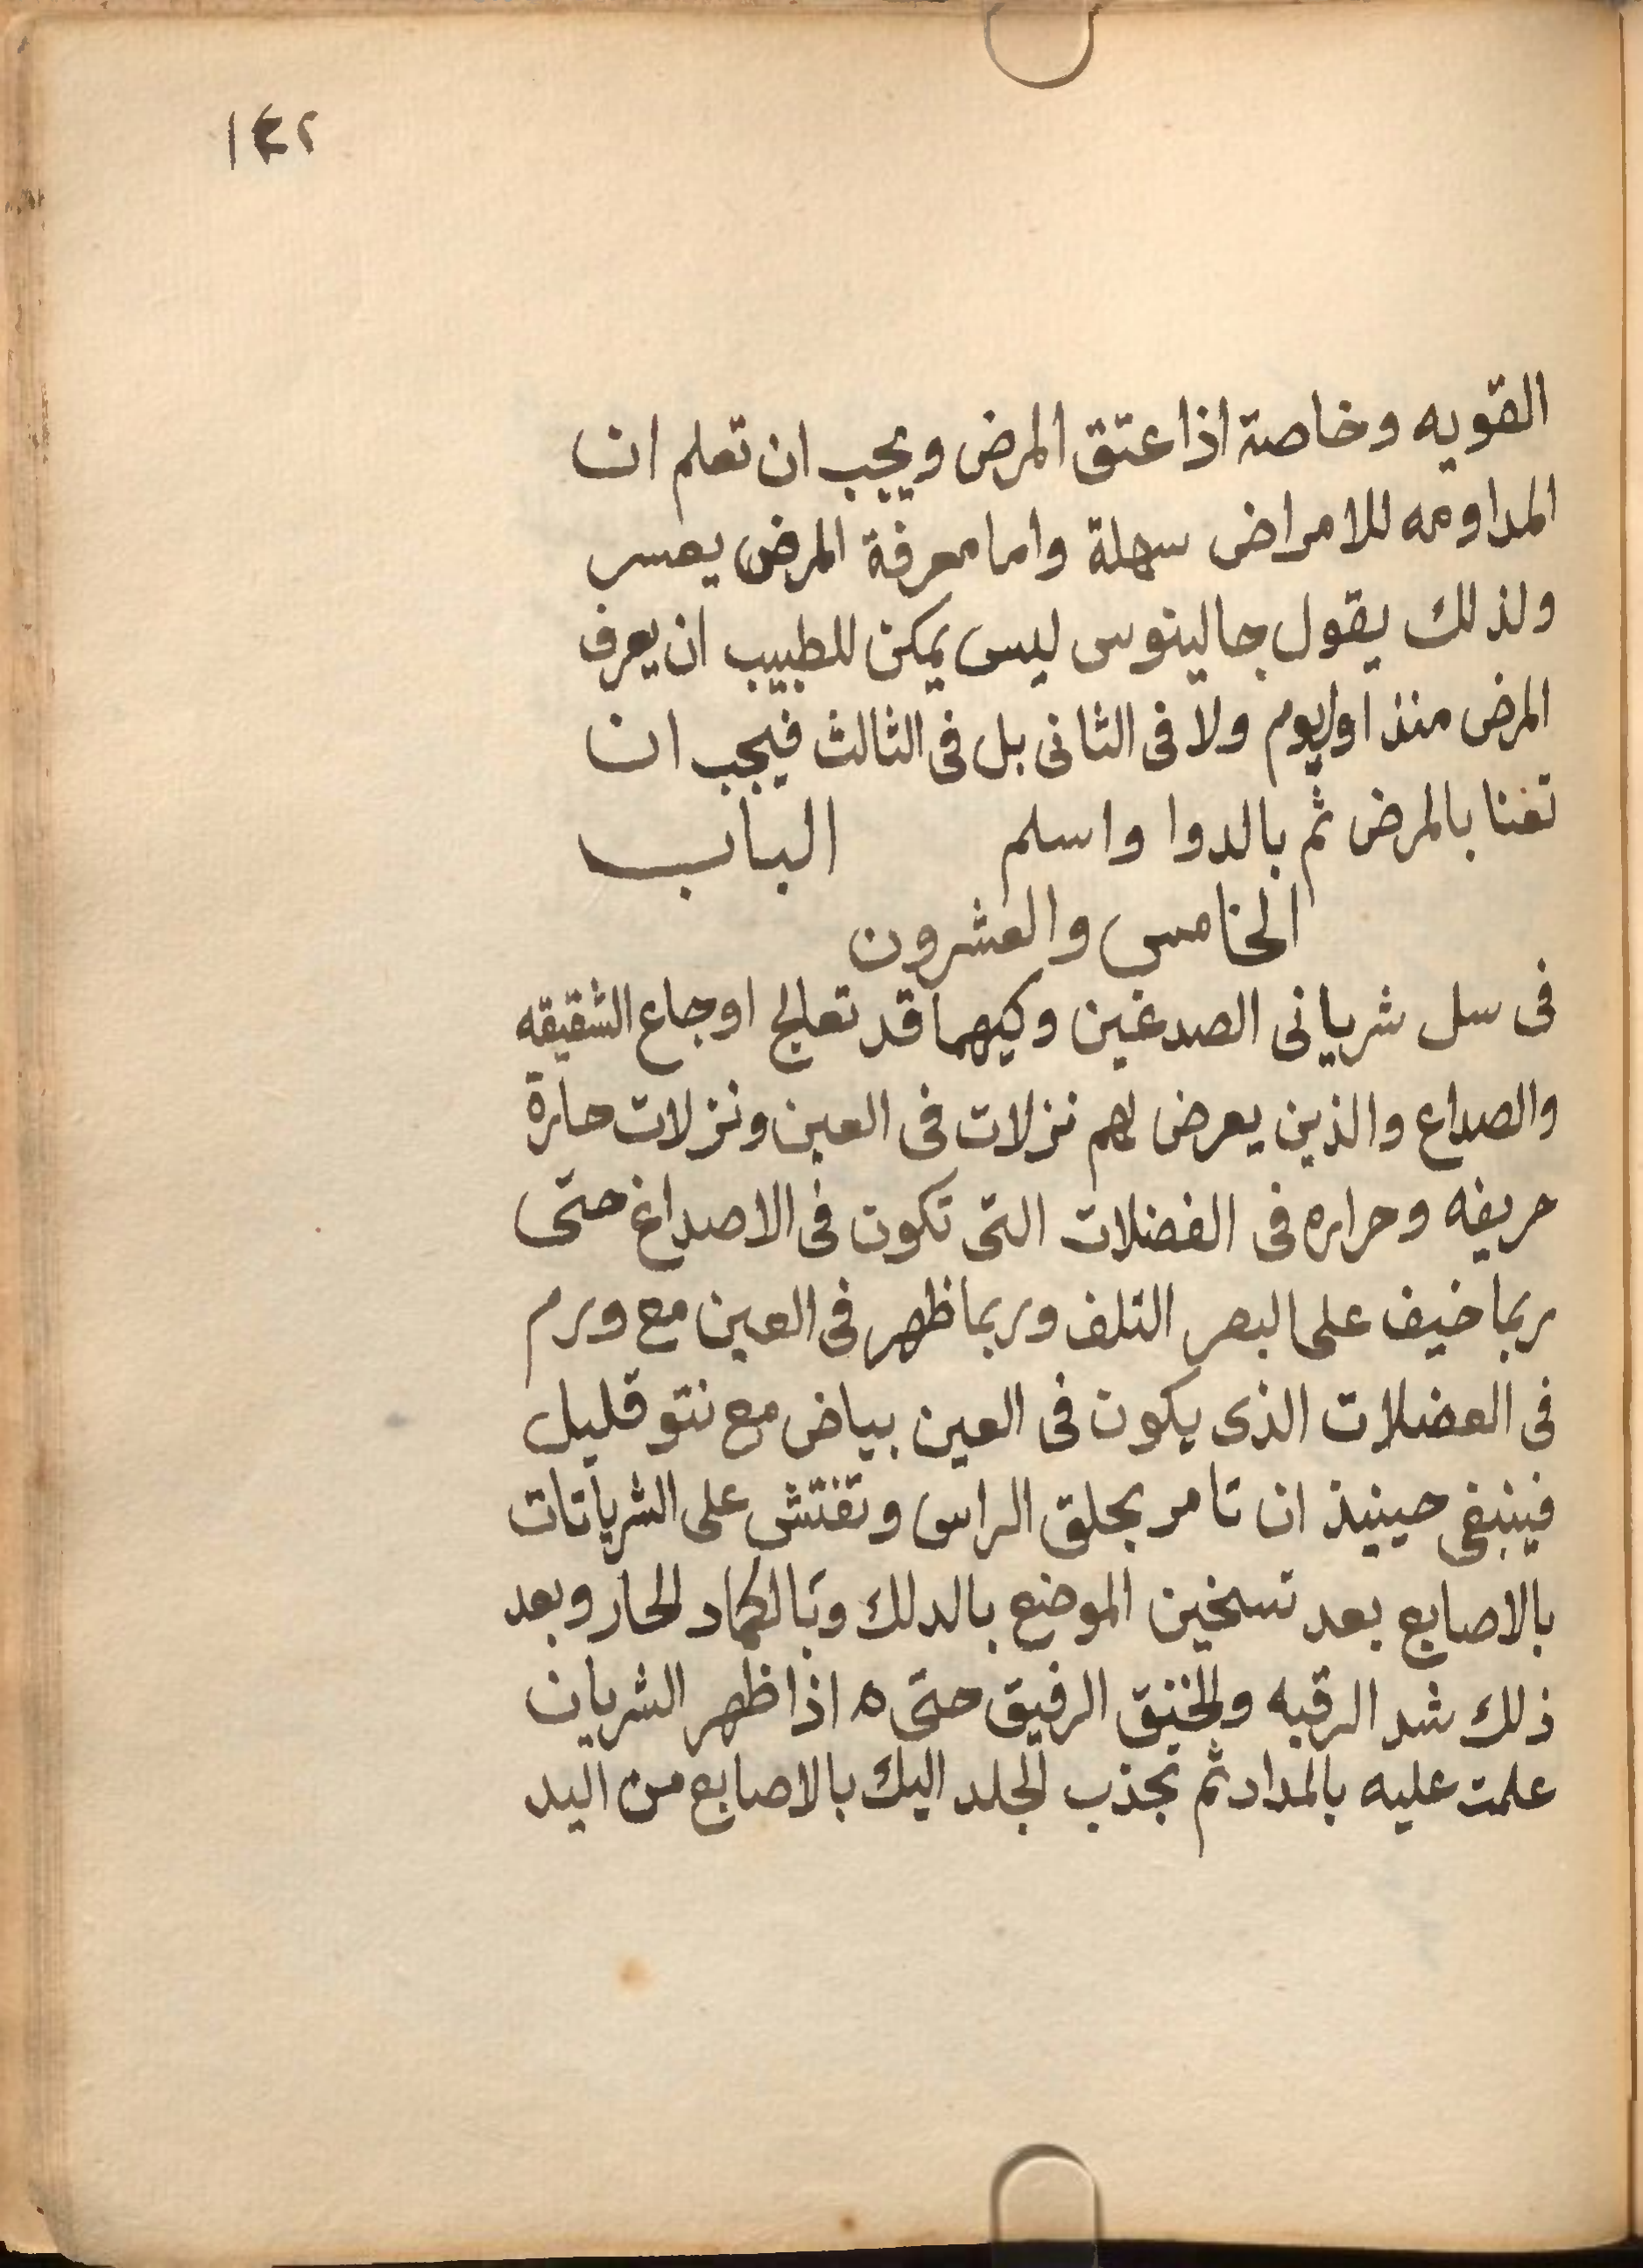 القويه وخاصة اذا عتق المرض ويجب ان تعلم ان
المداومه للامراض سهلة واما معرفة المرض يعسر
ولذلك يقول جالينوس ليس يمكن للطبيب ان يعرف
المرض منذ اول يوم ولا فى الثانى بل فى الثالث فيجب ان
تعنا بالمرض ثم بالدوا واسلم الباب
الخامس والعشرون
فى سل شريانى الصدغين وكيهما قد تعالج اوجاع الشقيقه
والصداع والذين يعرض لهم نزلات فى العين ونزلات حارة
حريفه وحراره فى الفضلات التى تكون فى الاصداغ حتى
ربما خيف على البصر التلف وربما ظهر فى العين مع ورم
فى العضلات الذى يكون فى العين بياض مع نتو قليل
فينبغى حينيذ ان تامر بحلق الراس وتفتش على الشريانات
بالاصابع بعد تسخين الموضع بالدلك وبالكماد الحار وبعد
ذلك شد الرقبه والخنق الرفيق حتى ٥ اذا ظهر الشريان
علمت عليه بالمداد ثم تجذب الجلد اليك بالاصابع من اليد